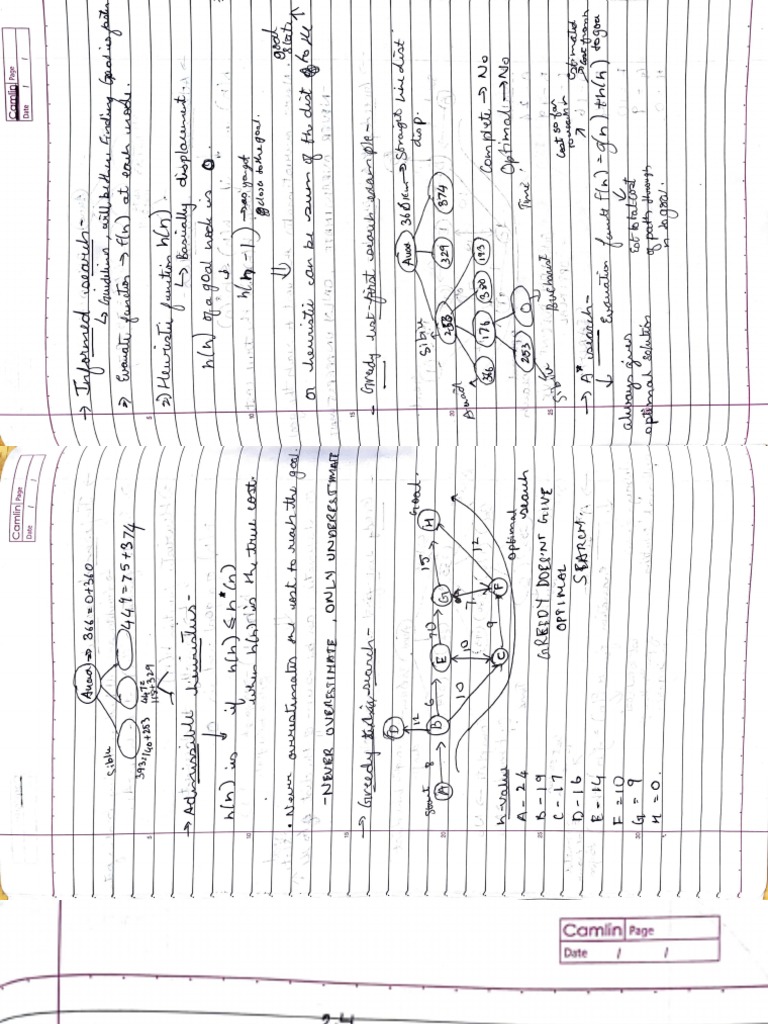 Camlin Page
Date / /
→ Informed search -
↳ Guideline, will better finding
2) Evaluate function → f(n) at each node.
2) Heuristic function h(n).
↳ Basically displacement
h(n) of a goal node is 0.
h(n, -1)
close to the goal.
goal
state
or heuristic can be sum of the dist of
- Greedy best first search example -
Arad 366km → Straight line dist
disp.
Sibiu
253 329 374
Arad
366 176 380 193
Complete → No
Optimal → No
Time:
253 0
Sibiu
Bucharest
→ A* search -
cost so far
to reach n
estimated
cost from n
to goal
↳ Evaluation funct f(n) = g(n) + h(n)
Est total cost
of path through
n to goal.
always gives
optimal solution
Camlin Page
Date / /
Arad ⇒ 366 = 0+360
Sibiu
449 = 75+374
393=140+253
447=
118+329
→ Admissible heuristics -
h(n) is if h(n) ≤ h*(n)
when h(n) is the true cost.
• Never overestimates the cost to reach the goal.
- NEVER OVERESTIMATE, ONLY UNDERESTIMATE
→ Greedy search -
D
12
Start A 8 B 6 E 10 G 15 H Goal.
10 10 7 12
C 9 F
optimal
search
h-value
A - 24
B - 19
C - 17
D - 16
E - 14
F = 10
G = 9
H = 0.
GREEDY DOESN'T GIVE
OPTIMAL
SEARCH.
Camlin Page
Date / /